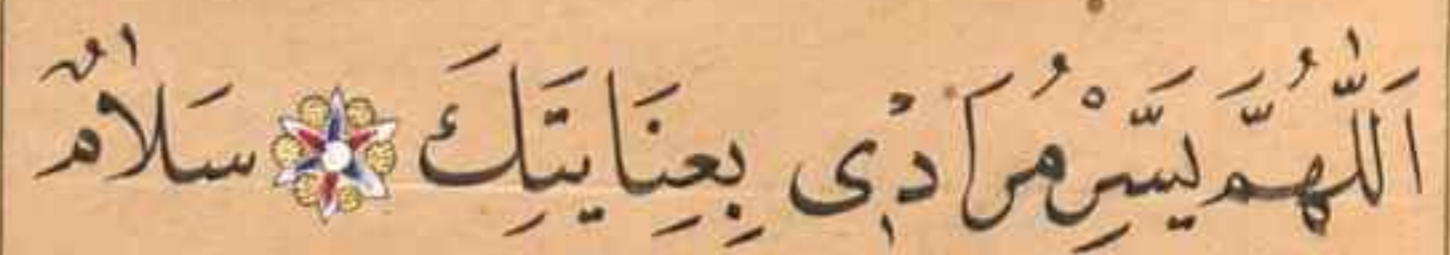 اَللّٰهُمَّ يَسِّرْ مُرَادٖى بِعِنَايَتِكَ سَلَامٌ